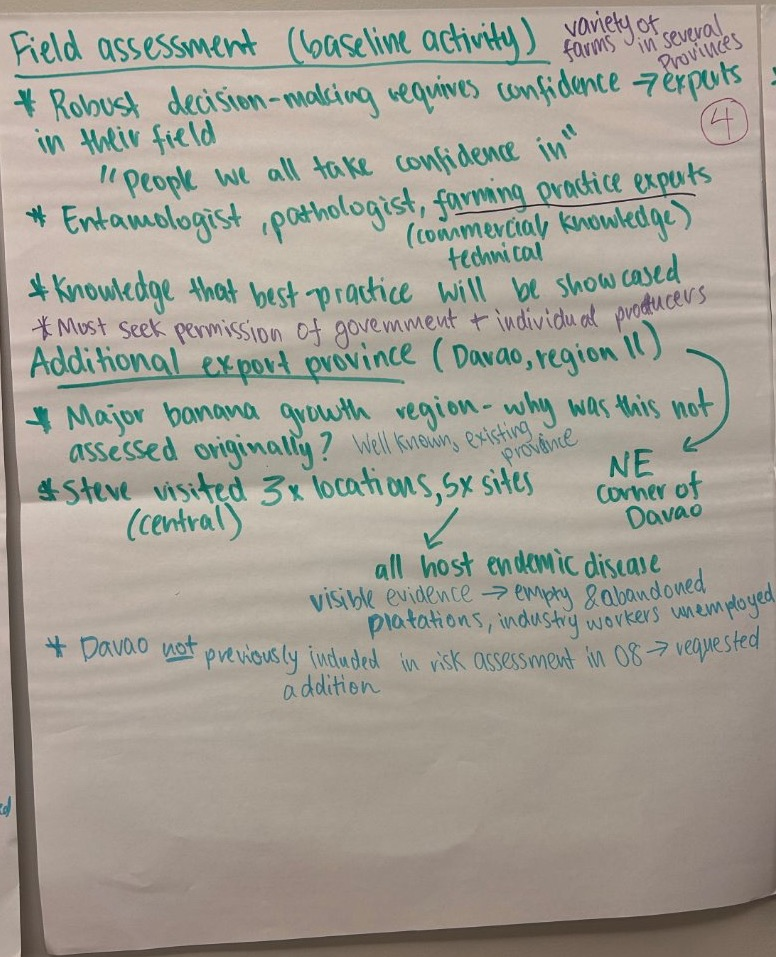 Field assessment (baseline activity) variety of
farms in several
Provinces
* Robust decision-making requires confidence → experts
in their field
④
"People we all take confidence in"
* Entamologist, pathologist, farming practice experts
(commercial, knowledge)
technical
* Knowledge that best-practice will be showcased
* Must seek permission of government + individual producers
Additional export province (Davao, region 11)
* Major banana growth region - why was this not
assessed originally? Well known, existing
province
NE
corner of
Davao
* Steve visited 3x locations, 5x sites
(central)
all host endemic disease
visible evidence → empty & abandoned
platations, industry workers unemployed
* Davao not previously included in risk assessment in 08 → requested
addition